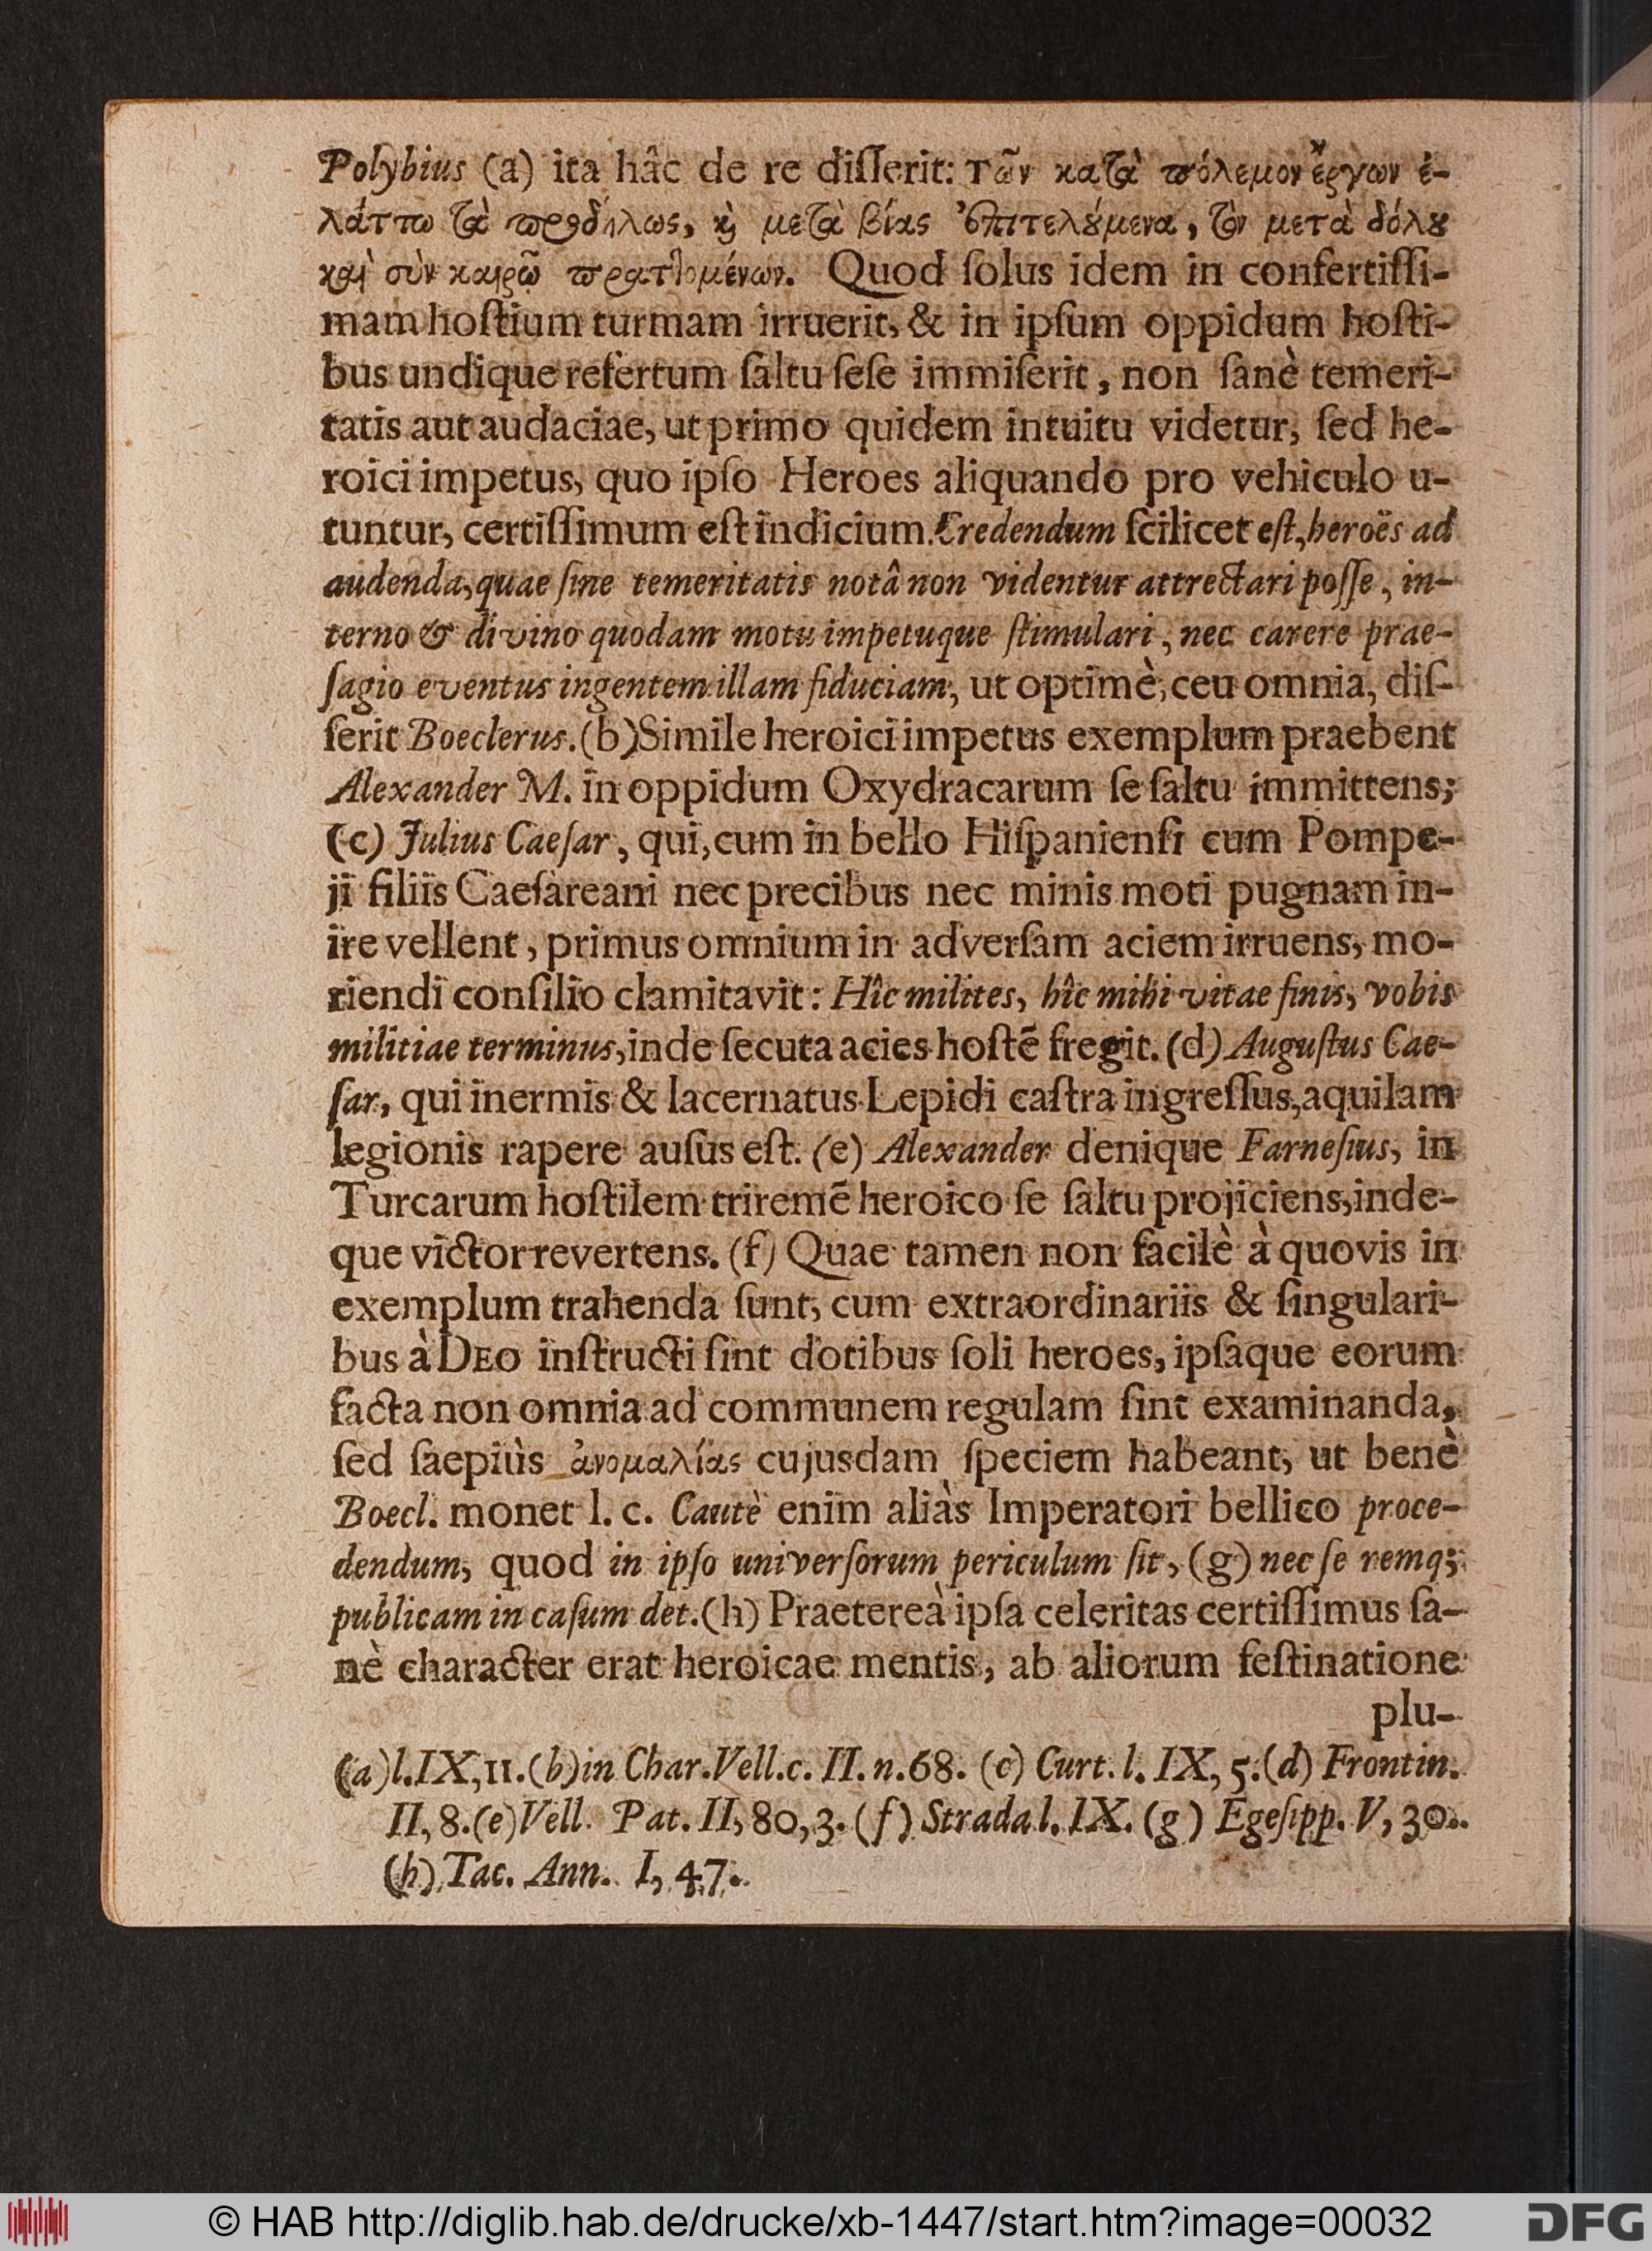 Polybius (a) ita hâc de re diſſerit: Τῶν κατὰ πόλεμον ἔργων ἐ-
λάττω τὰ προδήλως, κὶ μετὰ βίας ἐπιτελούμενα, τῶν μετὰ δόλου
καὶ σὺν καιρῷ πραττομένων. Quod ſolus idem in confertiſſi-
mam hoſtium turmam irruerit, & in ipſum oppidum hoſti-
bus undique refertum ſaltu ſeſe immiſerit, non ſanè temeri-
tatis aut audaciae, ut primo quidem intuitu videtur, ſed he-
roici impetus, quo ipſo Heroes aliquando pro vehiculo u-
tuntur, certiſſimum eſt indicium. Credendum ſcilicet eſt, heroës ad
audenda, quae ſine temeritatis notâ non videntur attrectari poſſe, in-
terno & divino quodam motu impetuque ſtimulari, nec carere prae-
ſagio eventus ingentem illam fiduciam, ut optimè, ceu omnia, diſ-
ſerit Boeclerus. (b) Simile heroici impetus exemplum praebent
Alexander M. in oppidum Oxydracarum ſe ſaltu immittens;
(c) Julius Caeſar, qui, cum in bello Hiſpanienſi cum Pompe-
ji filiis Caeſareani nec precibus nec minis moti pugnam in-
ire vellent, primus omnium in adverſam aciem irruens, mo-
riendi conſilio clamitavit: Hîc milites, hîc mihi vitae finis, vobis
militiae terminus, inde ſecuta acies hoſtē fregit. (d) Auguſtus Cae-
ſar, qui inermis & lacernatus Lepidi caſtra ingreſſus, aquilam
legionis rapere auſus eſt. (e) Alexander denique Farneſius, in
Turcarum hoſtilem triremē heroico ſe ſaltu projiciens, inde-
que victor revertens. (f) Quae tamen non facilè à quovis in
exemplum trahenda ſunt, cum extraordinariis & ſingulari-
bus à DEO inſtructi ſint dotibus ſoli heroes, ipſaque eorum
facta non omnia ad communem regulam ſint examinanda,
ſed ſaepiùs ἀνομαλίας cujusdam ſpeciem habeant, ut benè
Boecl. monet l. c. Cautè enim aliàs Imperatori bellico proce-
dendum, quod in ipſo univerſorum periculum ſit, (g) nec ſe remq;
publicam in caſum det. (h) Praetereà ipſa celeritas certiſſimus ſa-
nè character erat heroicae mentis, ab aliorum feſtinatione
plu-
(a) l. IX, 11. (b) in Char. Vell. c. II. n. 68. (c) Curt. l. IX, 5. (d) Frontin.
II, 8. (e) Vell. Pat. II, 80, 3. (f) Strada l. IX. (g) Egeſipp. V, 30.
(h) Tac. Ann. I, 47.
© HAB http://diglib.hab.de/drucke/xb-1447/start.htm?image=00032
DFG